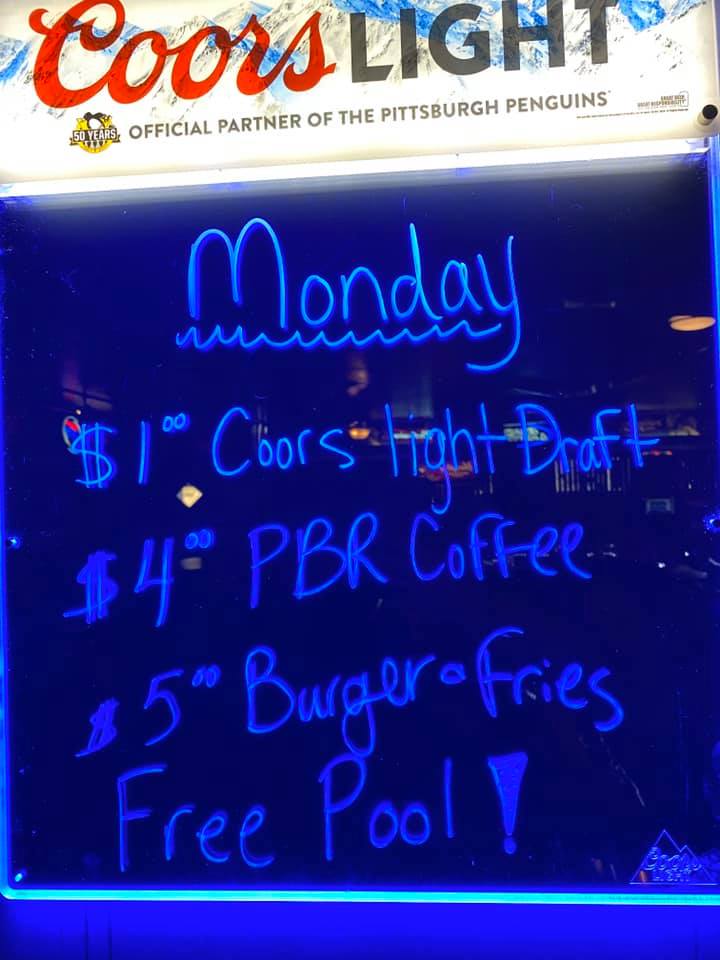 Coors LIGHT
50 YEARS OFFICIAL PARTNER OF THE PITTSBURGH PENGUINS
Monday
$1.00 Coors light Draft
$4.00 PBR Coffee
$5.00 Burger & fries
Free Pool!
Coors
LIGHT